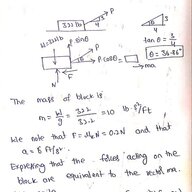 322lb
3
4
P
P sinθ
W=322lb
P
P cosθ
=
ma
N
F
3
4
tan θ = 3/4
θ = 36.86°
The mass of block is
m = W/g = 322/32.2 = 10 lb·s²/ft
We note that F = μkN = 0.2N and that
a = 5 ft/s².
Expressing that the forces acting on the
block are equivalent to the vector ma.